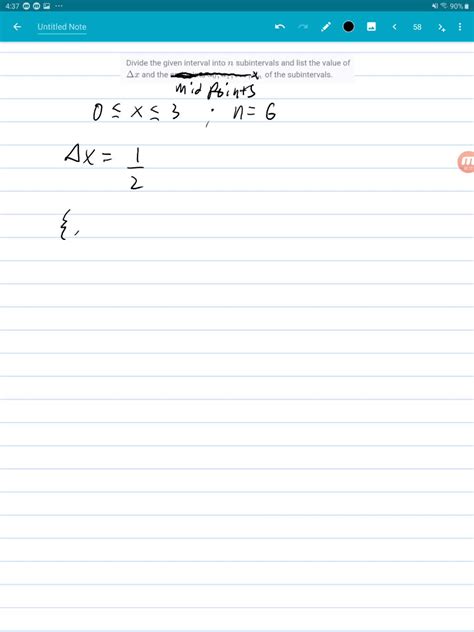 4:37 90%
Untitled Note 58
Divide the given interval into n subintervals and list the value of
Δx and the of the subintervals.
Mid Points
0 ≤ x ≤ 3 ; n = 6
Δx = 1/2
{,